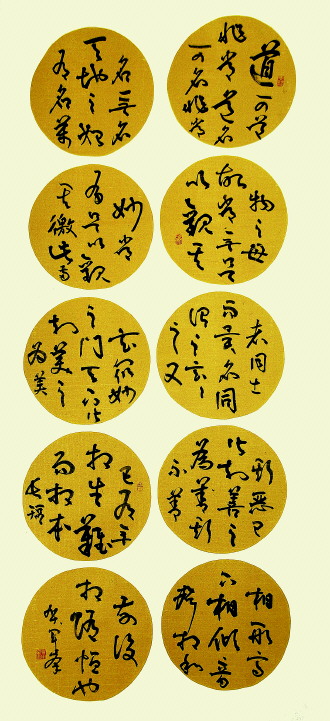 道可道
非常道名
可名非常
名無名
天地之始
有名萬
物之母
故常無欲
以觀其
妙常
有欲以觀
其徼此兩
者同出
而異名同
謂之玄玄
之又
玄眾妙
之門天下皆
知美之
為美
斯惡已
皆知善之
為善斯
不善
已有無
相生難
易相成
長短
相形高
下相傾音
聲相和
前後
相隨恒也